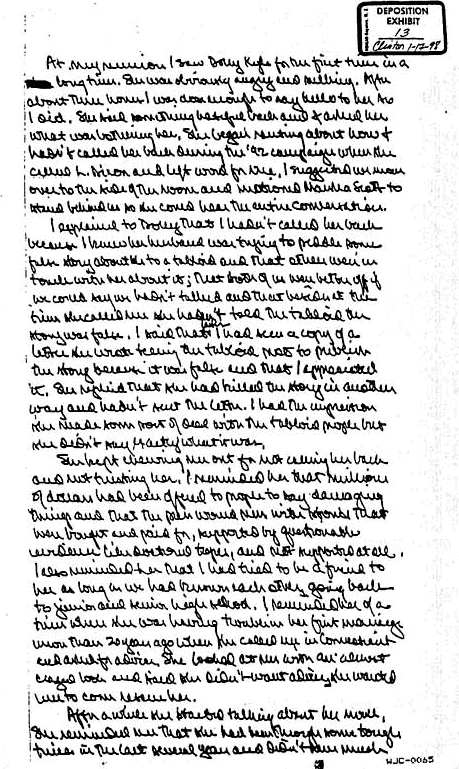 DEPOSITION
EXHIBIT
13
Clinton 1-17-98
At my reunion I saw Dolly Kyle for the first time in a
long time. She was obviously angry and . After
about three hours I was close enough to say hello to her so
I did. She said something hateful back and I asked her
what was bothering her. She began ranting about how I
hadn't called her back during the '92 campaign when she
called and left word for me. I suggested we move
over to the side of the room and motioned Marsha Scott to
stand behind us so she could hear the entire conversation.
I explained to Dolly that I hadn't called her back
because I knew her husband was trying to peddle some
false story about to a tabloid and that others were in
touch with her about it; that both of us were better off if
we could say we hadn't talked and that besides at the
time she called me she hadn't told the tabloid the
story was false. I said that I had seen a copy of a
letter she wrote telling the tabloid not to publish
the story because it was false and that I appreciated
it. She replied that she had killed the story in another
way and hadn't sent the letter. I had the impression
she made some sort of deal with the tabloid people but
she didn't say exactly what it was.
She kept chewing me out for not calling her back
and not trusting her. I reminded her that millions
of dollars had been offered to people to say damaging
things and that the papers would run with reports that
were bought and paid for, supported by questionable
evidence like doctored tapes, and not supported at all.
I also reminded her that I had tried to be a friend to
her as long as we had known each other, going back
to junior and senior high school. I reminded her of a
time when she was having trouble in her first marriage
more than 20 years ago when she called me in Connecticut
and asked for advice. She looked at me with an almost
crazed look and said she didn't want advice, she wanted
me to come rescue her.
After a while she started talking about her novel.
She reminded me that she had been through some tough
times in the last several years and didn't have much
WJC-0065